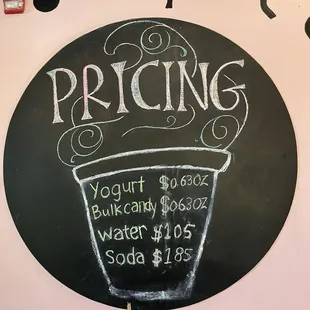 PRICING
Yogurt $0.63OZ
Bulkcandy $063OZ
water $1.05
Soda $1.85